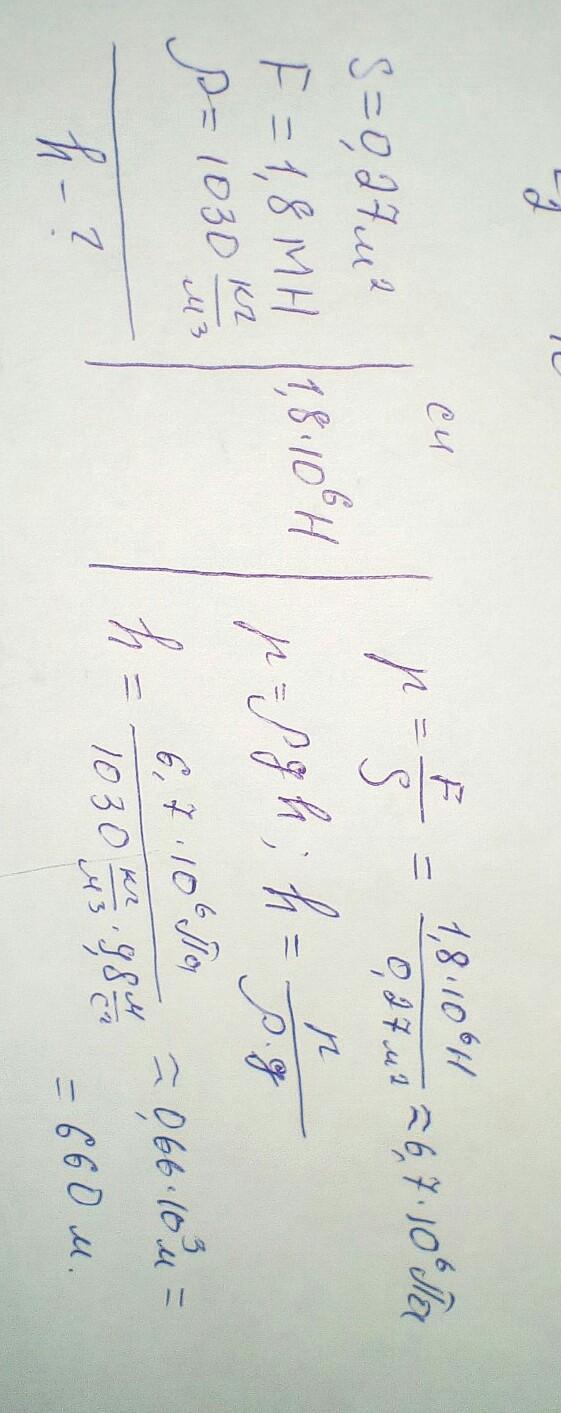 S = 0,27 м²
F = 1,8 МН
ρ = 1030 кг/м³
h - ?
СИ
1,8·10⁶ Н
p = F/S = 1,8·10⁶ Н / 0,27 м² ≈ 6,7·10⁶ Па
p = ρgh; h = p/ρ·g
h = 6,7·10⁶ Па / 1030 кг/м³ · 9,8 м/с² ≈ 0,66·10³ м =
= 660 м.